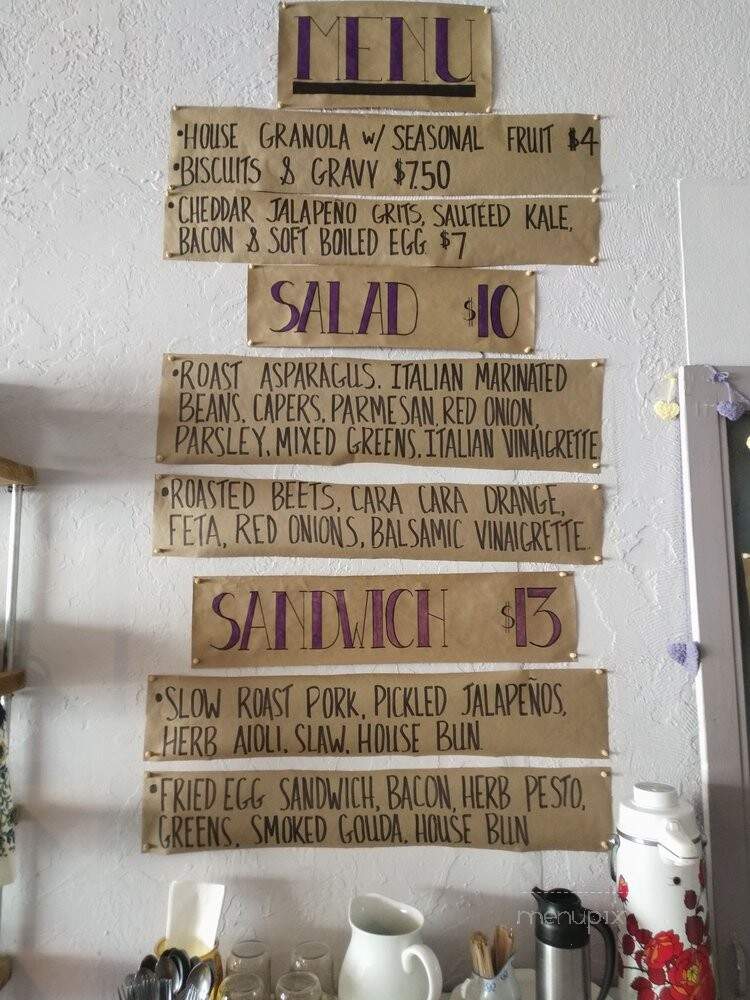 MENU
•HOUSE GRANOLA w/ SEASONAL FRUIT $4
•BISCUITS & GRAVY $7.50
•CHEDDAR JALAPENO GRITS, SAUTEED KALE,
BACON & SOFT BOILED EGG $7
SALAD $10
•ROAST ASPARAGUS, ITALIAN MARINATED
BEANS, CAPERS, PARMESAN, RED ONION,
PARSLEY, MIXED GREENS, ITALIAN VINAIGRETTE
•ROASTED BEETS, CARA CARA ORANGE,
FETA, RED ONIONS, BALSAMIC VINAIGRETTE.
SANDWICH $13
•SLOW ROAST PORK, PICKLED JALAPEÑOS,
HERB AIOLI, SLAW, HOUSE BUN
•FRIED EGG SANDWICH, BACON, HERB PESTO,
GREENS, SMOKED GOUDA, HOUSE BUN
menupix